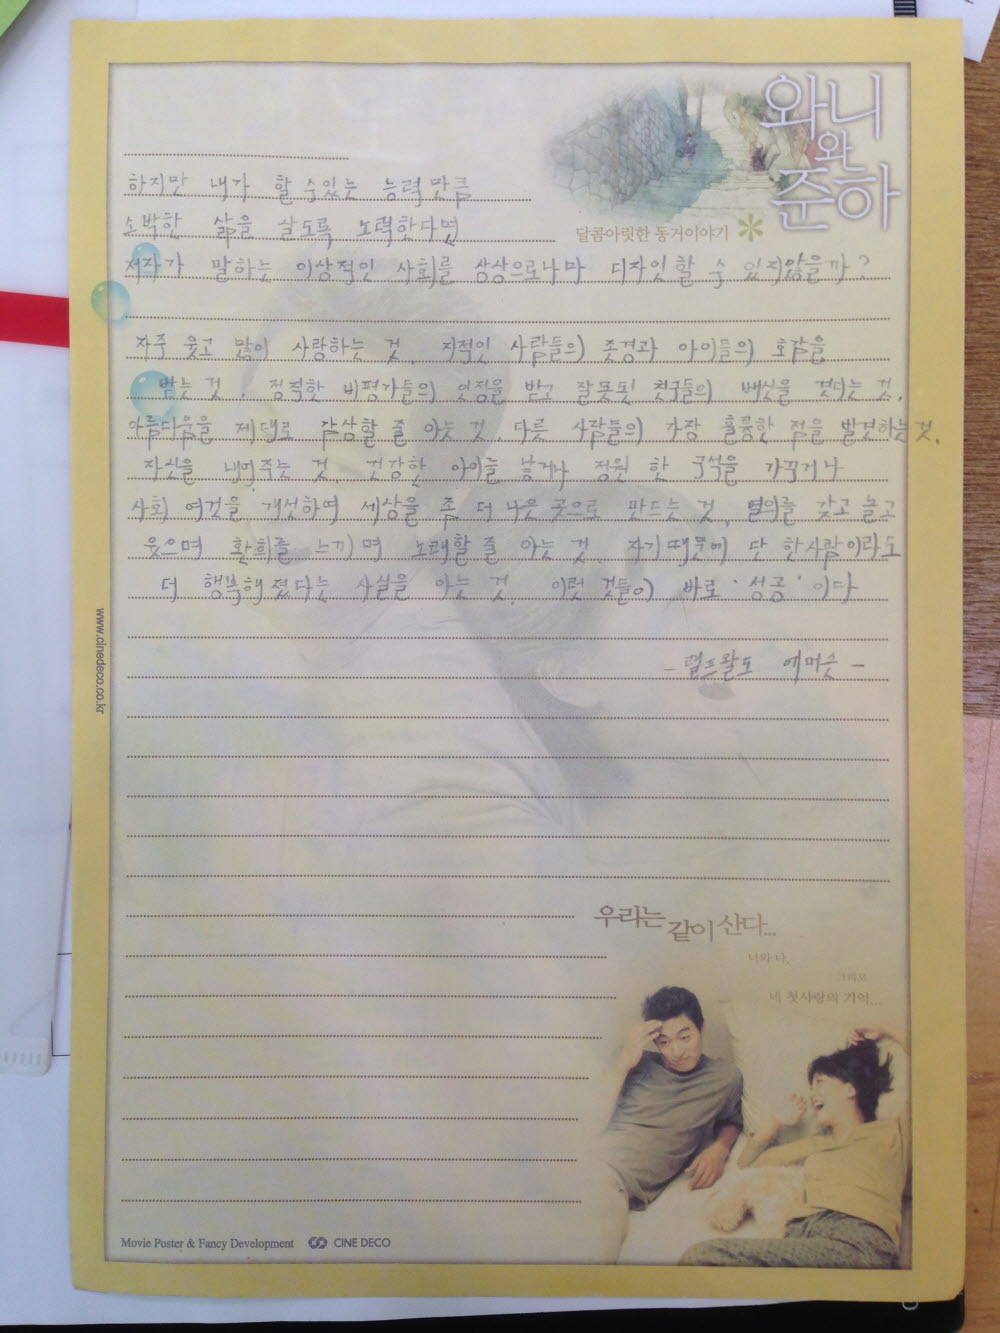 와니
와
준하
달콤아릿한 동거이야기
하지만 내가 할 수있는 능력만큼
소박한 삶을 살도록 노력한다면
저자가 말하는 이상적인 사회를 상상으로나마 디자인 할 수 있지않을까?
자주 웃고 많이 사랑하는 것, 지적인 사람들의 존경과 아이들의 호감을
받는 것, 정직한 비평가들의 인정을 받고 잘못된 친구들의 배신을 견디는 것,
아름다움을 제대로 감상할 줄 아는 것, 다른 사람들의 가장 훌륭한 점을 발견하는 것,
자신을 내어주는 것, 건강한 아이를 낳거나 정원 한 구석을 가꾸거나
사회 여건을 개선하여 세상을 좀 더 나은 곳으로 만드는 것, 열의를 갖고 놀고
웃으며 환희를 느끼며 노래할 줄 아는 것, 자기때문에 단 한사람이라도
더 행복해졌다는 사실을 아는 것, 이런 것들이 바로 '성공' 이다
- 랠프왈도 에머슨 -
www.cinedeco.co.kr
우리는 같이 산다...
너와 나,
그리고
네 첫사랑의 기억...
Movie Poster & Fancy Development CINE DECO